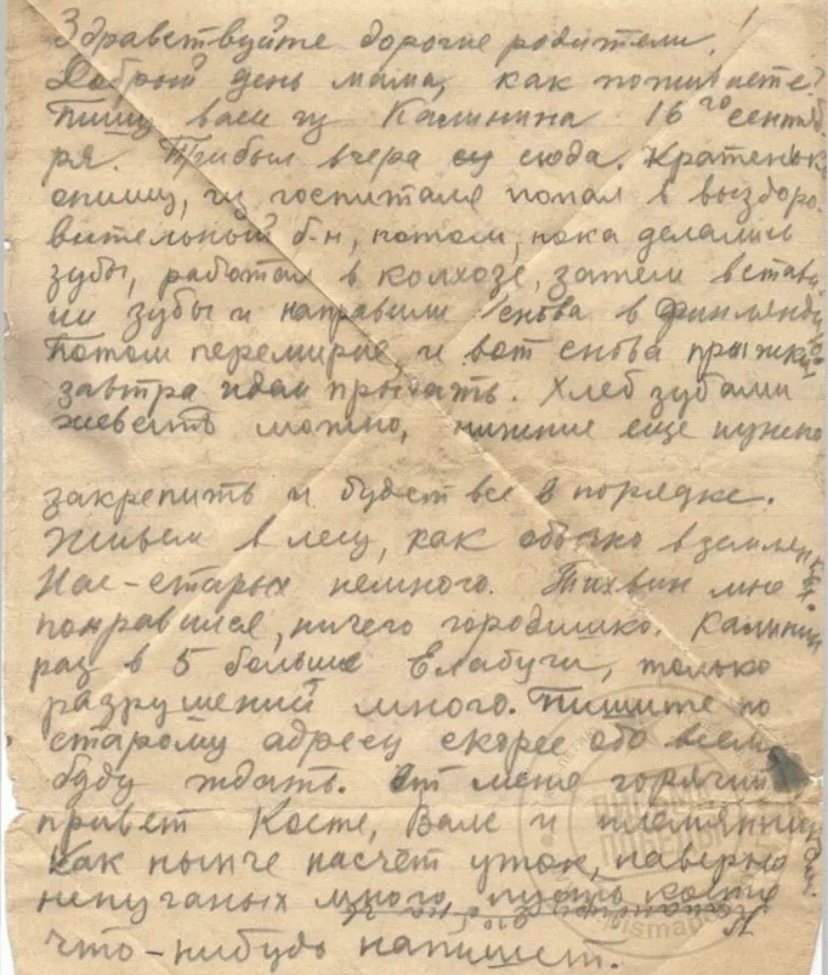 Здравствуйте дорогие родители!
Добрый день мама, как поживаете?
Пишу вам из Калинина 16го сентяб
ря. Прибыл вчера сюда. Кратеньк
опишу, из госпиталя попал в выздоро-
вительный б-н, потом, пока делались
зубы, работал в колхозе, затем встави-
ли зубы и направили снова в Финлянди
Потом перемирие, и вот снова прыжки
завтра идем прыгать. Хлеб зубами
жевать можно, нижние еще нужно
закрепить и будет все в порядке.
Живем в лесу, как обычно в землянках.
Нас-старых немного. Тихвин мне
понравился, ничего городишко. Калинин
раз в 5 больше Елабуги, только
разрушений много. Пишите по
старому адресу скорее обо всем
буду ждать. От меня горячий
привет Косте, Вале и племянникам.
Как нынче насчёт уток, наверно
непуганых много, пусть Костя
что-нибудь напишет.